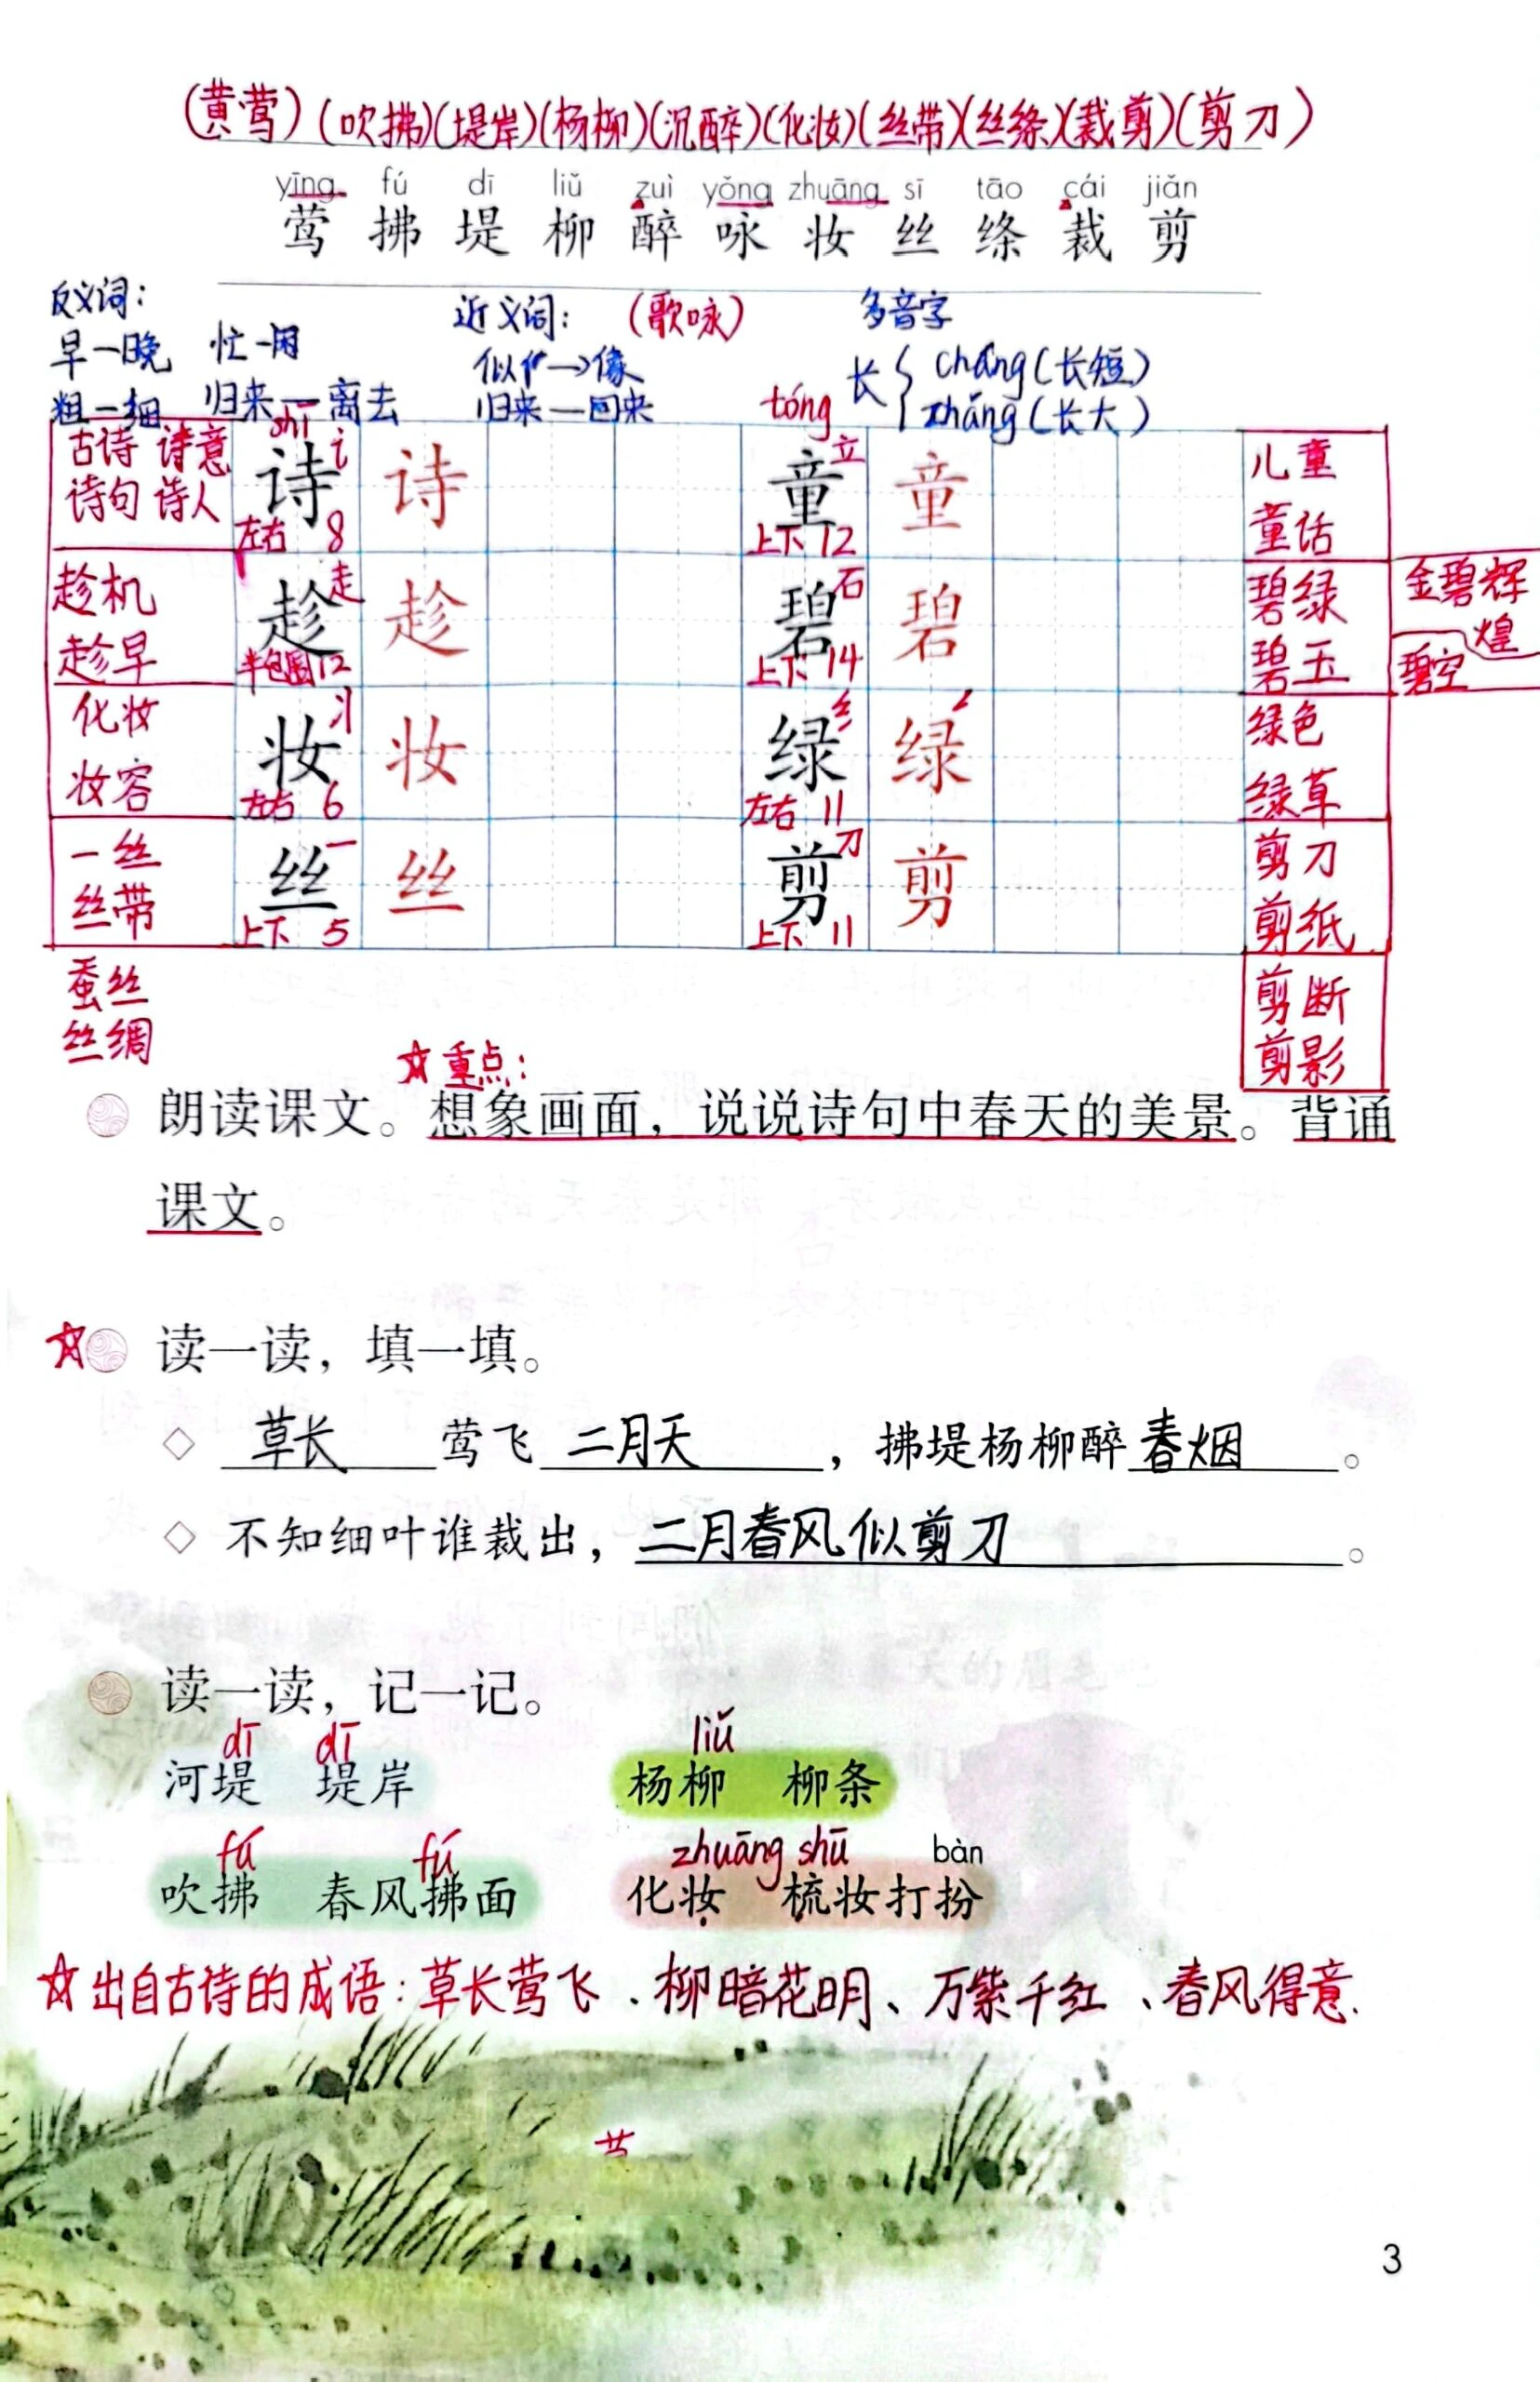 (黄莺)(吹拂)(堤岸)(杨柳)(沉醉)(化妆)(丝带)(丝绦)(裁剪)(剪刀)
yīng fú dī liǔ zuì yǒng zhuāng sī tāo cái jiǎn
莺 拂 堤 柳 醉 咏 妆 丝 绦 裁 剪
反义词: 近义词: (歌咏) 多音字
早—晚 忙—闲 似→像 长{cháng(长短)
粗—细 归来—离去 归来—回来 zhǎng(长大)
shī tóng
古诗 诗意 诗 讠 诗 童 立 童 儿童
诗句 诗人 左右 8 上下 12 童话
趁机 趁 走 趁 碧 石 碧 碧绿 金碧辉煌
趁早 半包围 12 上下 14 碧玉 碧空
化妆 妆 丬 妆 绿 纟 绿 绿色
妆容 左右 6 左右 11 绿草
一丝 丝 一 丝 剪 刀 剪 剪刀
丝带 上下 5 上下 11 剪纸
蚕丝 剪断
丝绸 剪影
☆重点:
朗读课文。想象画面，说说诗句中春天的美景。背诵
课文。
☆ 读一读，填一填。
◇ 草长 莺飞 二月天 ，拂堤杨柳醉 春烟 。
◇ 不知细叶谁裁出，二月春风似剪刀 。
读一读，记一记。
dī dī liǔ
河堤 堤岸 杨柳 柳条
fú fú zhuāng shū bàn
吹拂 春风拂面 化妆 梳妆打扮
☆出自古诗的成语:草长莺飞、柳暗花明、万紫千红、春风得意.
3